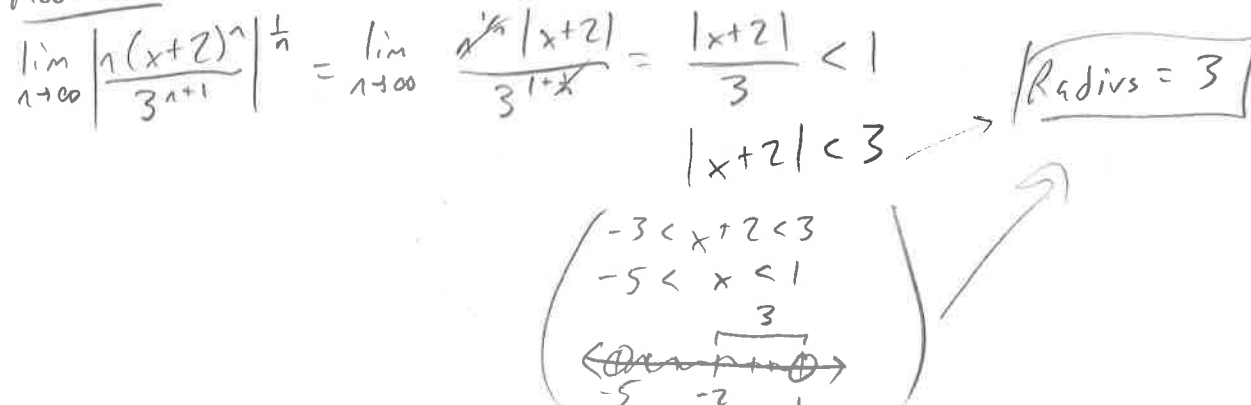 lim n→∞ |n(x+2)^n / 3^{n+1}|^{1/n} = lim n→∞ n^{1/n} |x+2| / 3^{1+1/n} = |x+2| / 3 < 1
Radius = 3
|x+2| < 3
-3 < x+2 < 3
-5 < x < 1
3
-5 -2 1